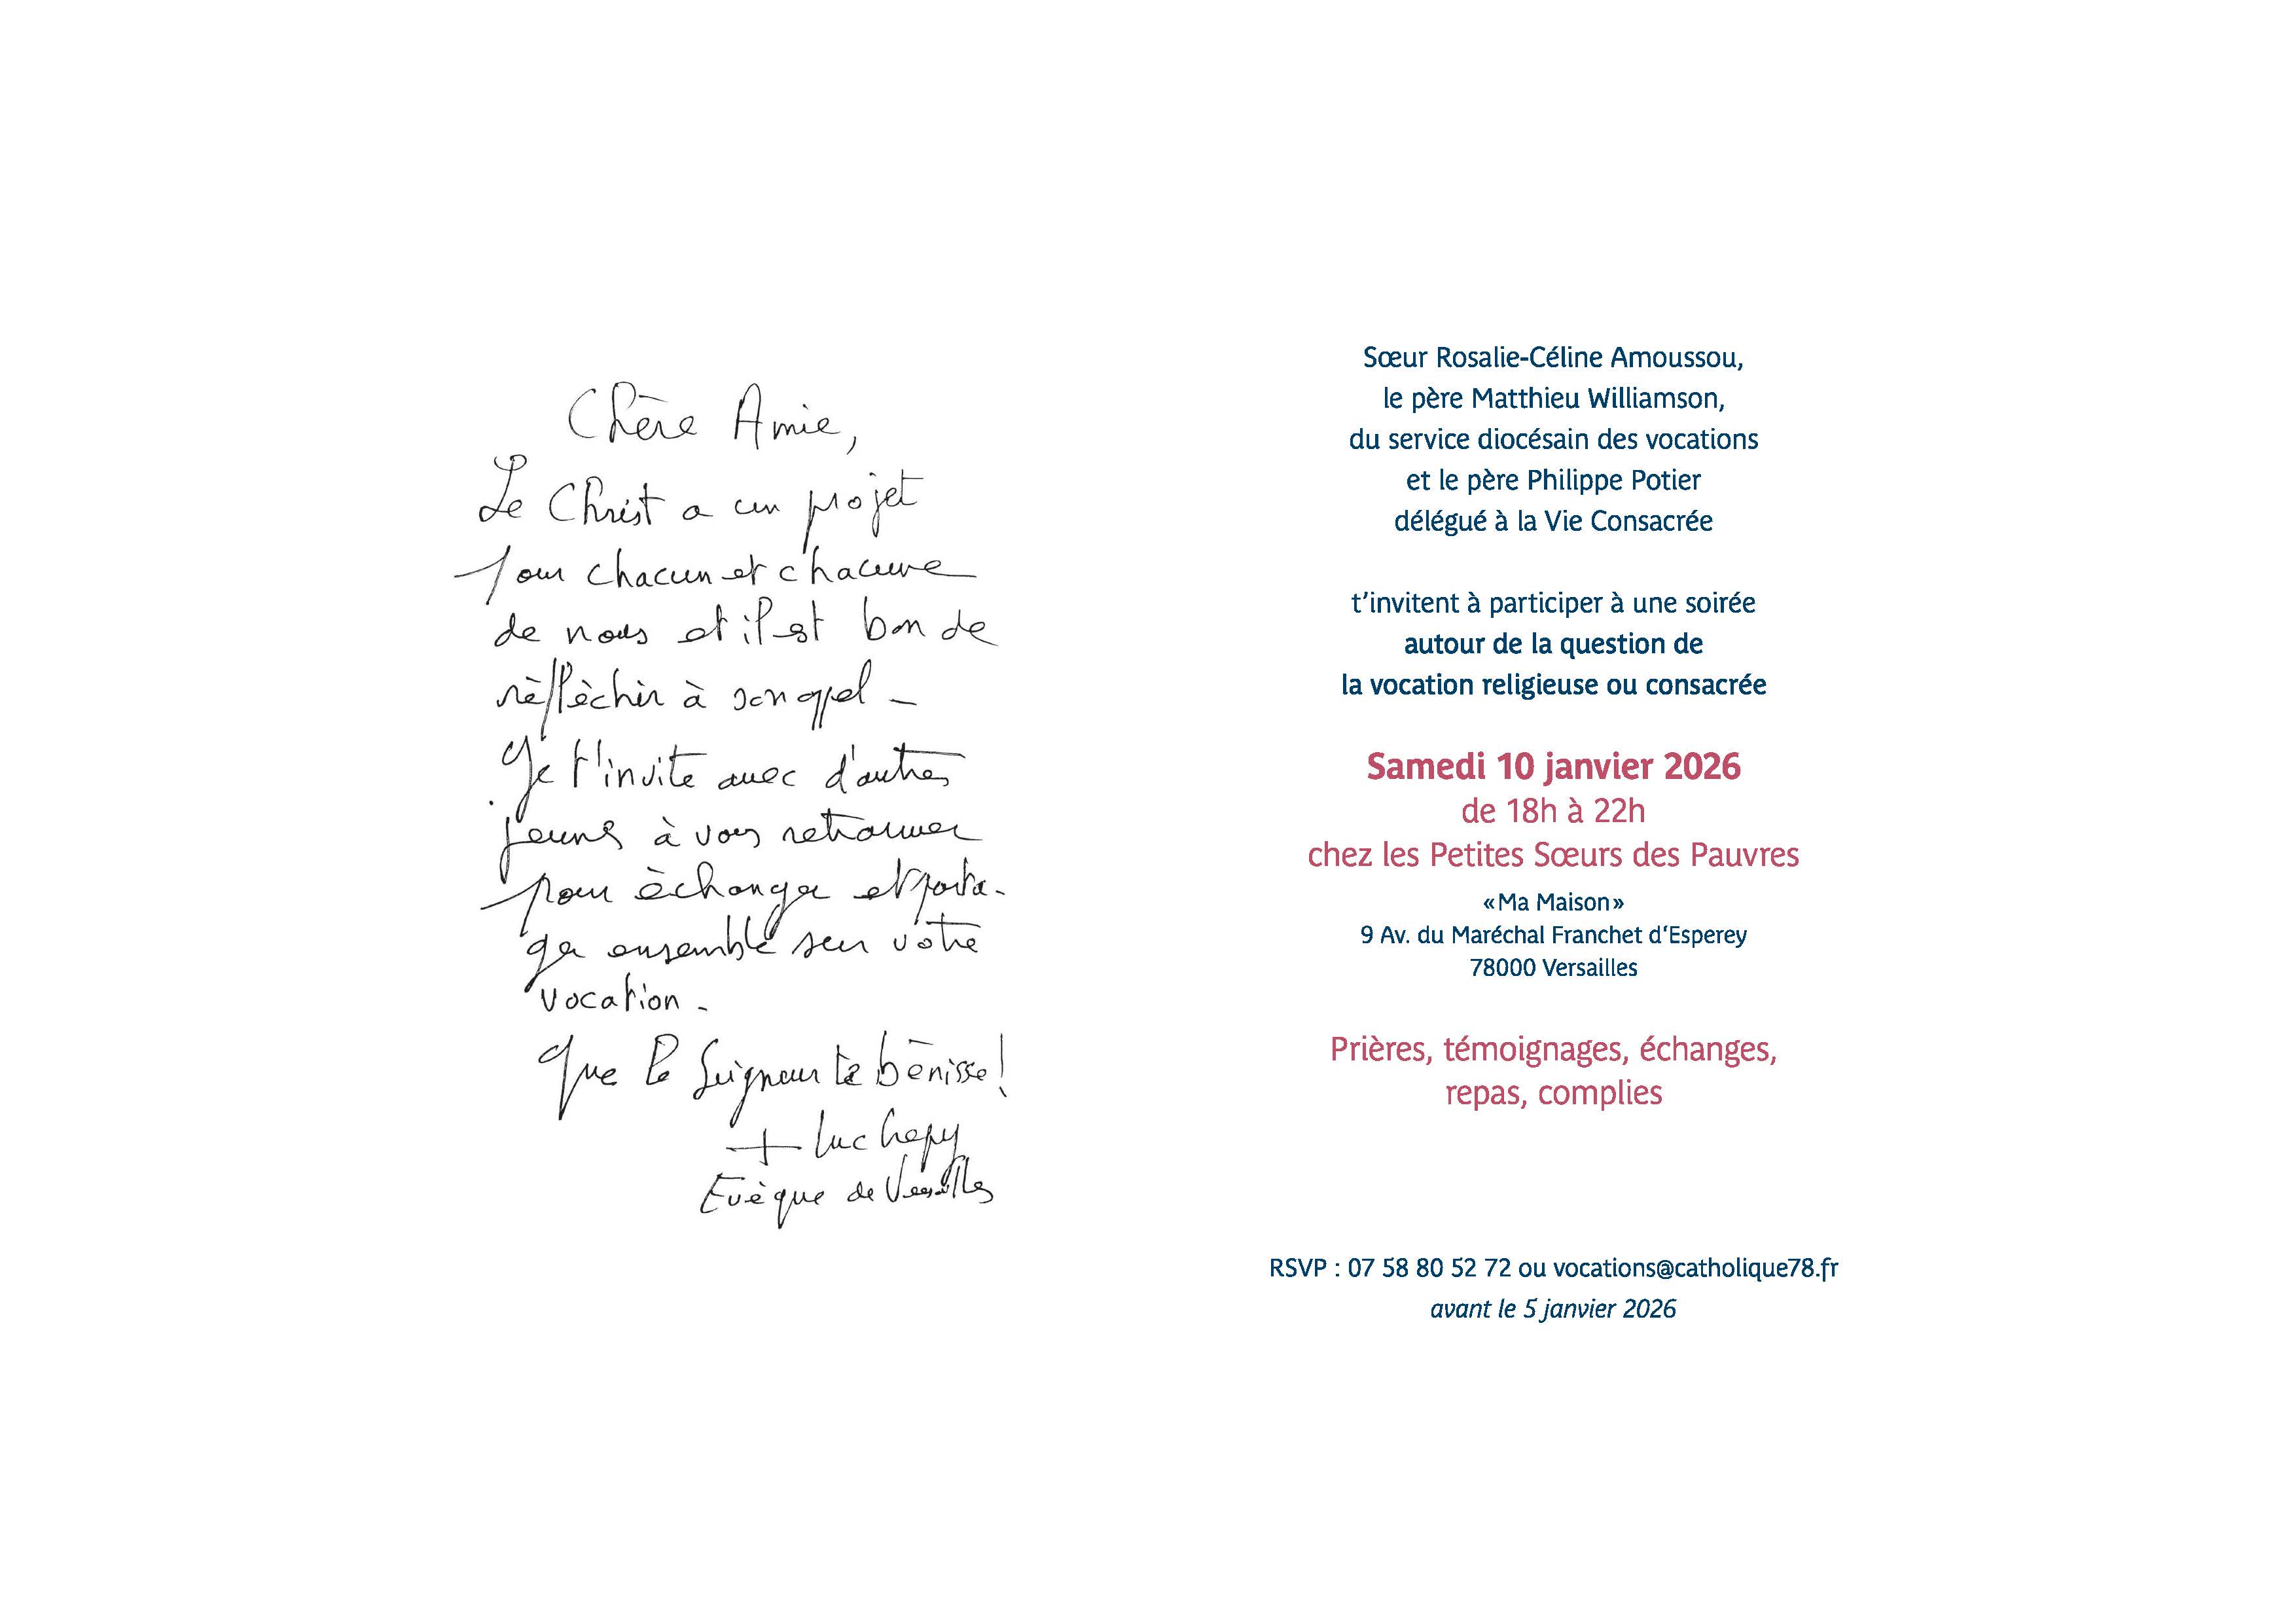 Chère Amie,
Le Christ a un projet
pour chacun et chacune
de nous et il est bon de
réfléchir à son appel -
Je t'invite avec d'autres
jeunes à vous retrouver
pour échanger et parta-
ger ensemble sur votre
vocation -
Que le Seigneur te bénisse !
+ Luc Crepy
Evêque de Versailles
Sœur Rosalie-Céline Amoussou,
le père Matthieu Williamson,
du service diocésain des vocations
et le père Philippe Potier
délégué à la Vie Consacrée
t'invitent à participer à une soirée
autour de la question de
la vocation religieuse ou consacrée
Samedi 10 janvier 2026
de 18h à 22h
chez les Petites Sœurs des Pauvres
«Ma Maison»
9 Av. du Maréchal Franchet d‘Esperey
78000 Versailles
Prières, témoignages, échanges,
repas, complies
RSVP : 07 58 80 52 72 ou vocations@catholique78.fr
avant le 5 janvier 2026